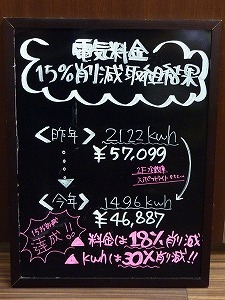 電気料金
15%削減取組結果
<昨年> 2122kwh
¥57,099
<今年> 1496kwh
¥46,887
15%削減
達成!!
▲料金は18%削減
▲kwhは30%削減!!